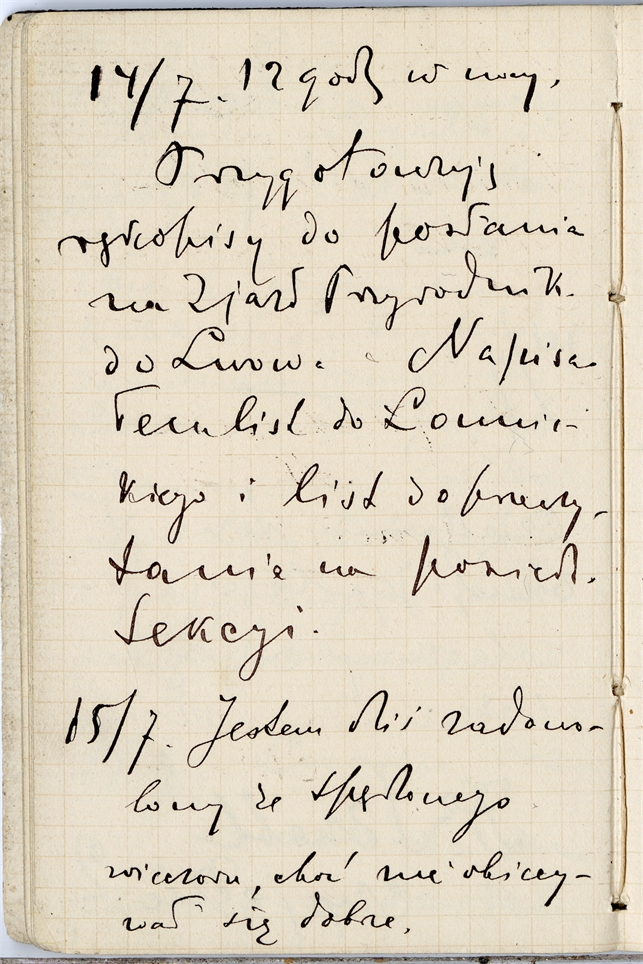 14/7. 12 godz w nocy.
Przygotowuję
rękopisy do posłania
na Zjazd Przyrodnik.
do Lwowa. Napisa-
łem list do Łomnic-
kiego i list do przeczy-
tania na posiedz.
Sekcyi.
15/7. Jestem dziś zadowo-
lony ze spędzonego
wieczoru, choć nie obiecy-
wał się dobrze.